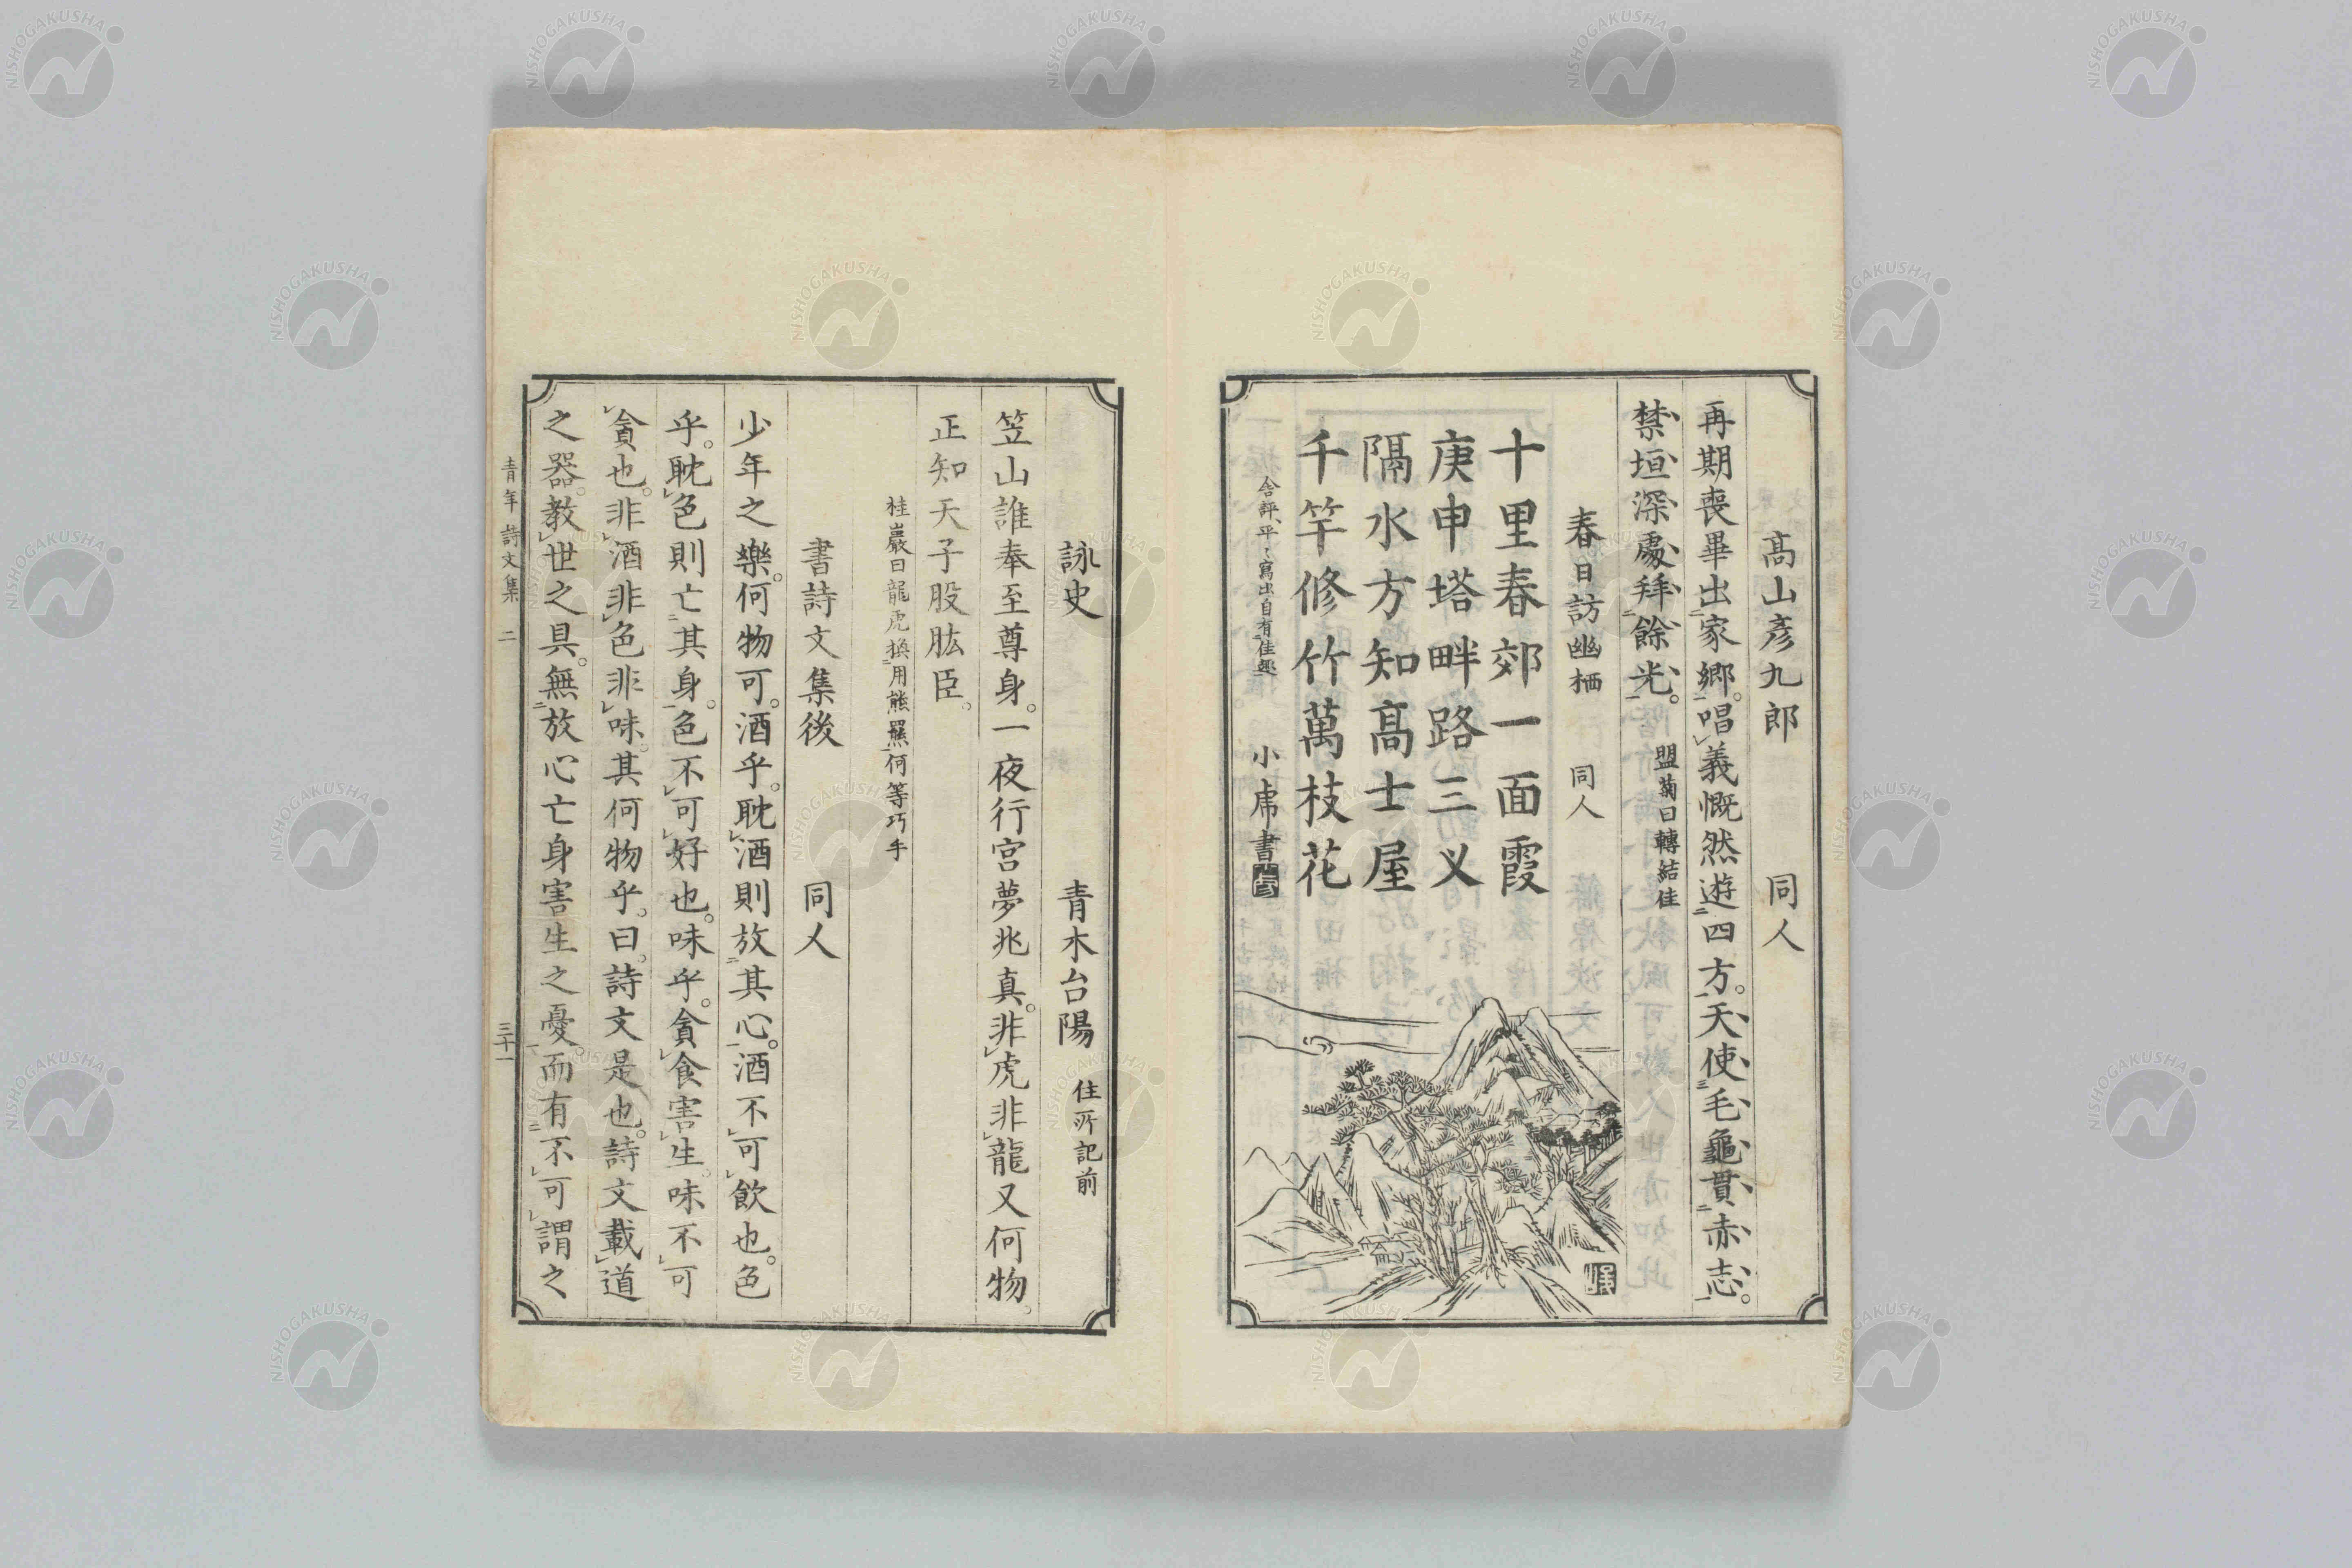 高山彥九郎　同人
再期喪畢出家鄉。唱義慨然遊四方。天使毛龜貫赤志。
禁垣深處拜餘光。　盟菊曰轉結佳
春日訪幽栖　同人
十里春郊一面霞
庚申塔畔路三乂
隔水方知高士屋
千竿修竹萬枝花
舎評、平々寫出自有佳趣　小虎書
詠史　青木台陽　住所記前
笠山誰奉至尊身。一夜行宮夢兆真。非虎非龍又何物。
正知天子股肱臣。
桂巖曰龍虎換用熊羆何等巧手
書詩文集後　同人
少年之樂。何物可。酒乎。耽酒則放其心。酒不可飲也。色
乎。耽色則亡其身。色不可好也。味乎。貪食害生。味不可
貪也。非酒非色非味。其何物乎。曰。詩文是也。詩文載道
之器。教世之具。無放心亡身害生之憂。而有不可謂之
青年詩文集　二　三十一
NISHOGAKUSHA